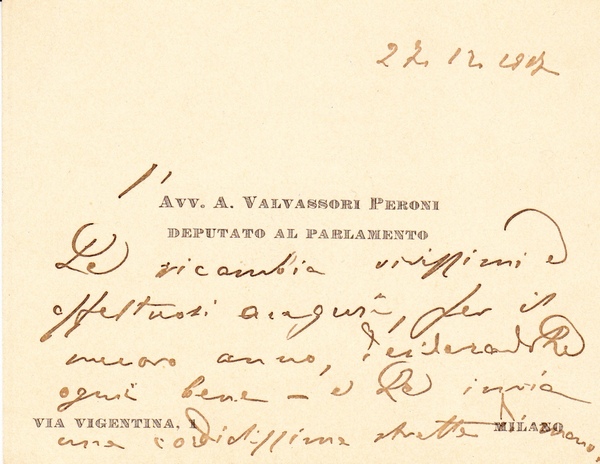 27. 12. 1917
l'
AVV. A. VALVASSORI PERONI
DEPUTATO AL PARLAMENTO
Le ricambia vivissimi e
affettuosi auguri, per il
nuovo anno, desiderandole
ogni bene – e Le invia
VIA VIGENTINA, 1 MILANO
una cordialissima stretta di mano,